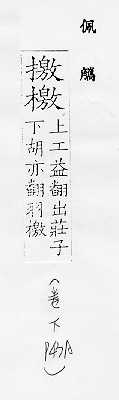 佩觿
撽檄
上工益翻出莊子
下胡亦翻羽檄
(卷下 )